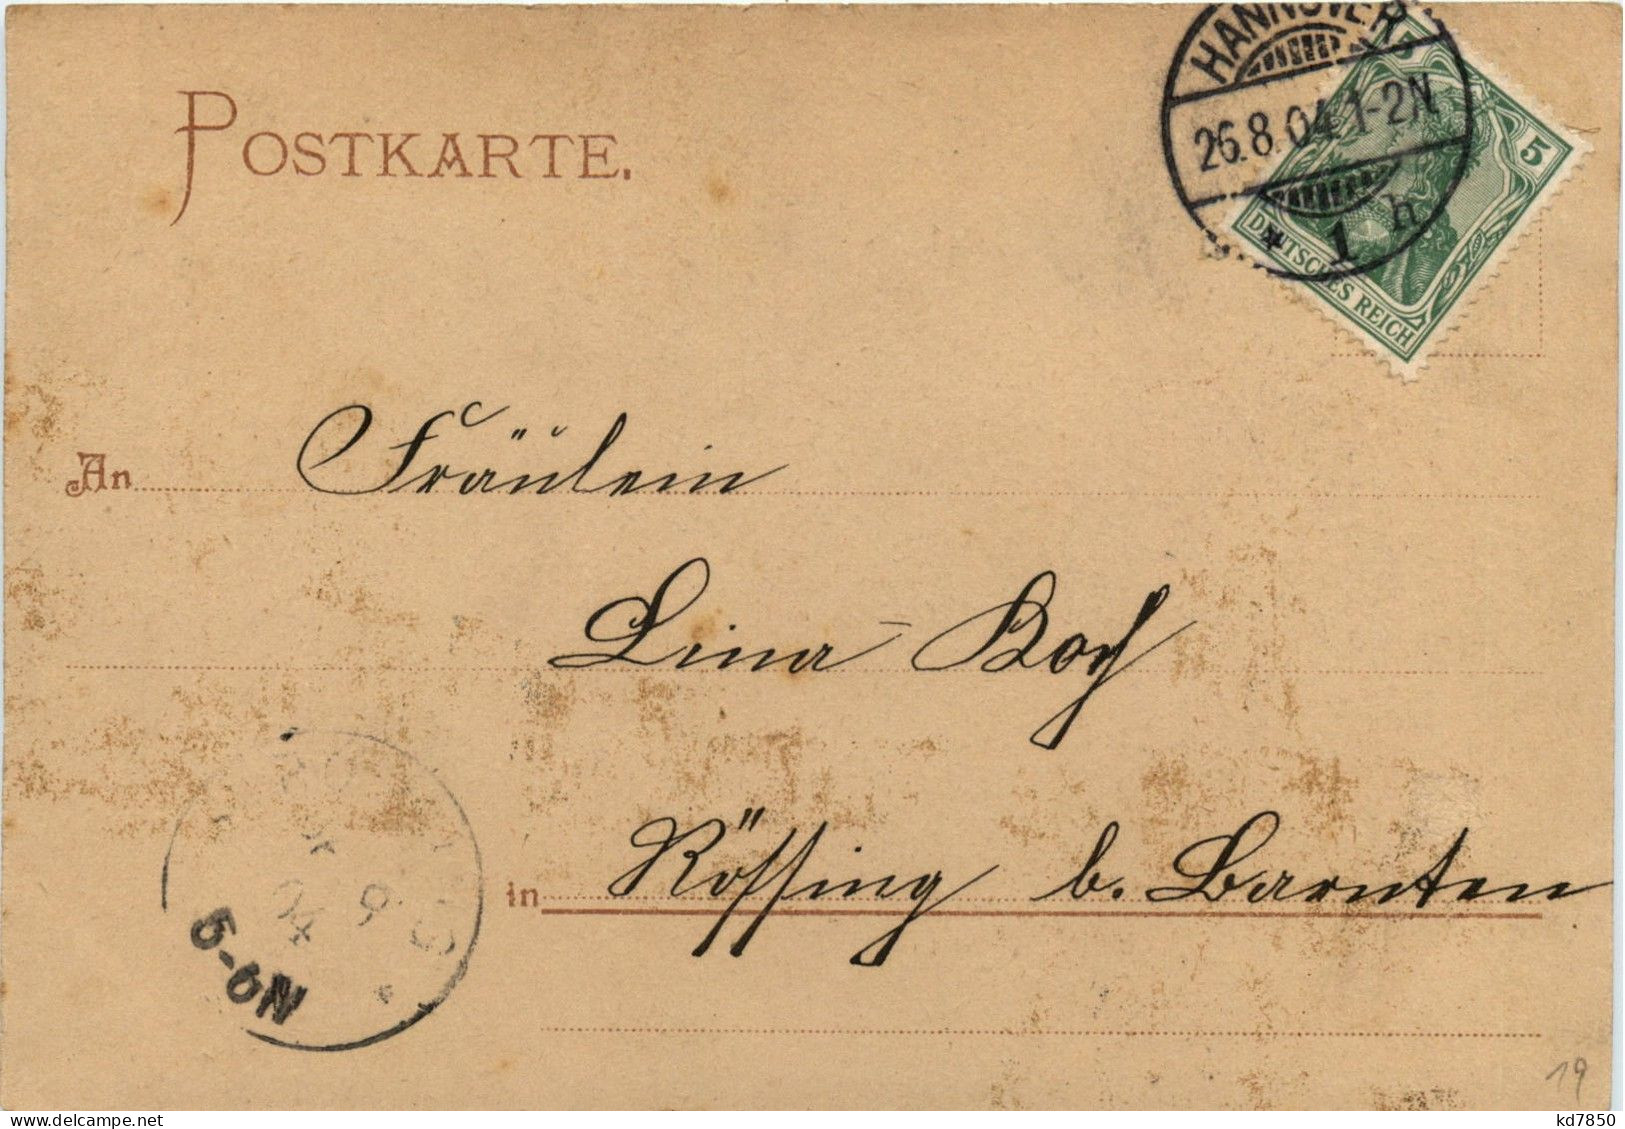 POSTKARTE.
HANNOVER
26.8.04.1-2N
* 1 h
5
DEUTSCHES REICH
An Fräulein
Lina Boch
in Rössing b. Barnten
04
5-6N
19
kd7850